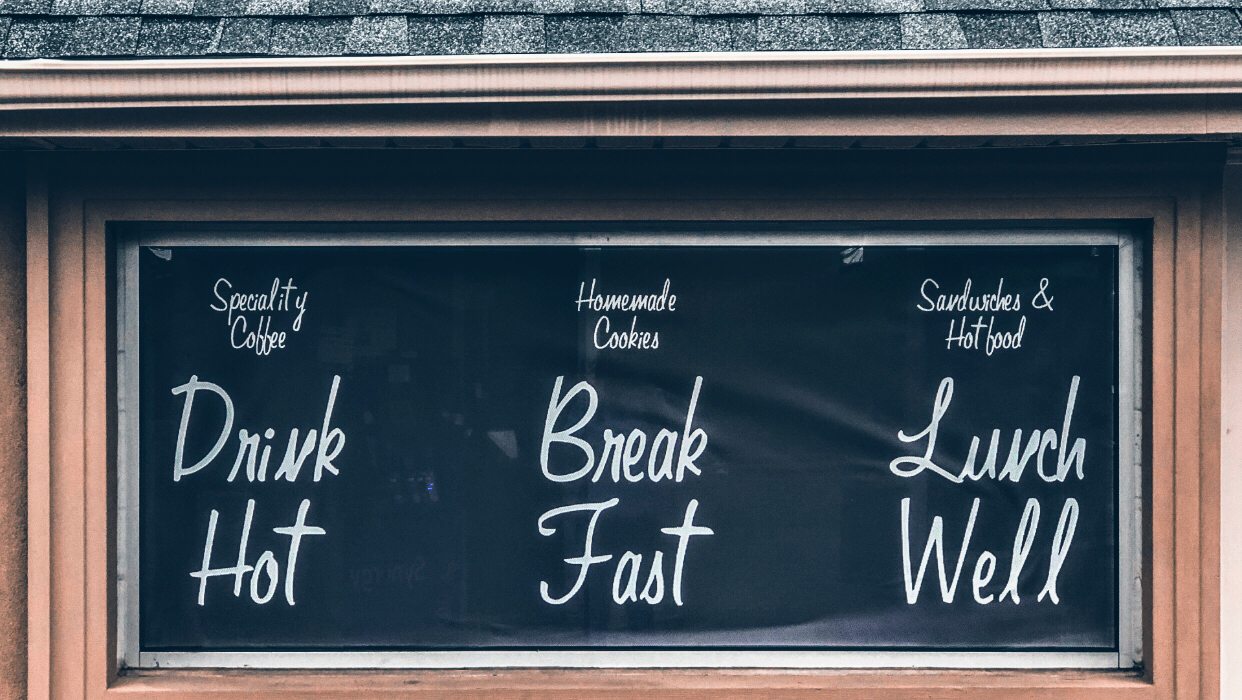 Speciality
Coffee
Drink
Hot
Homemade
Cookies
Break
Fast
Sandwiches &
Hot food
Lunch
Well